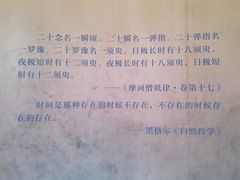 二十念名一瞬顷。二十瞬名一弹指。二十弹指名
一罗豫。二十罗豫名一须臾。日极长时有十八须臾，
夜极短时有十二须臾。夜极长时有十八须臾，日极短
时有十二须臾。
——《摩诃僧祇律·卷第十七》
时间是那种存在的时候不存在，不存在的时候存
在的存在。
——黑格尔《自然哲学》